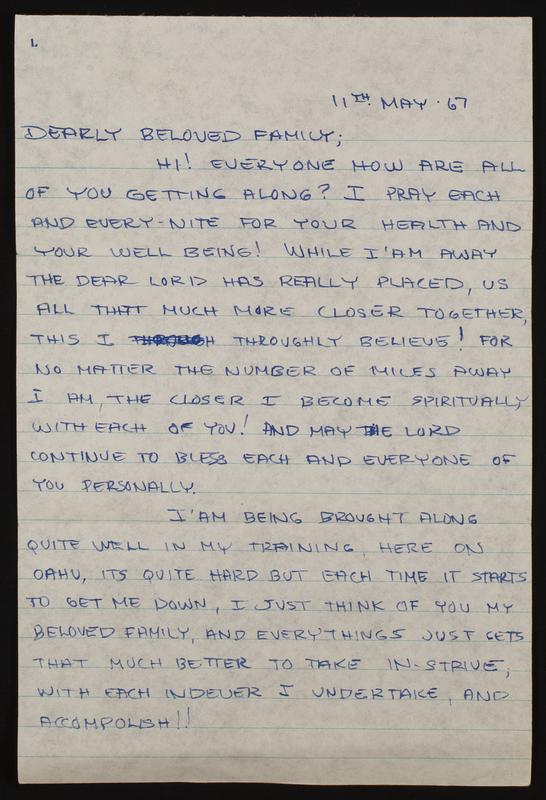 1.
11TH MAY · 67
DEARLY BELOVED FAMILY;
HI! EVERYONE HOW ARE ALL
OF YOU GETTING ALONG? I PRAY EACH
AND EVERY-NITE FOR YOUR HEALTH AND
YOUR WELL BEING! WHILE I'AM AWAY
THE DEAR LORD HAS REALLY PLACED, US
ALL THAT MUCH MORE CLOSER TOGETHER,
THIS I THROUGHLY BELIEVE! FOR
NO MATTER THE NUMBER OF MILES AWAY
I AM, THE CLOSER I BECOME SPIRITUALLY
WITH EACH OF YOU! AND MAY THE LORD
CONTINUE TO BLESS EACH AND EVERYONE OF
YOU PERSONALLY.
I'AM BEING BROUGHT ALONG
QUITE WELL IN MY TRAINING, HERE ON
OAHU, ITS QUITE HARD BUT EACH TIME IT STARTS
TO GET ME DOWN, I JUST THINK OF YOU MY
BELOVED FAMILY, AND EVERYTHINGS JUST GETS
THAT MUCH BETTER TO TAKE IN-STRIVE,
WITH EACH INDEVER I UNDERTAKE, AND
ACCOMPOLISH!!